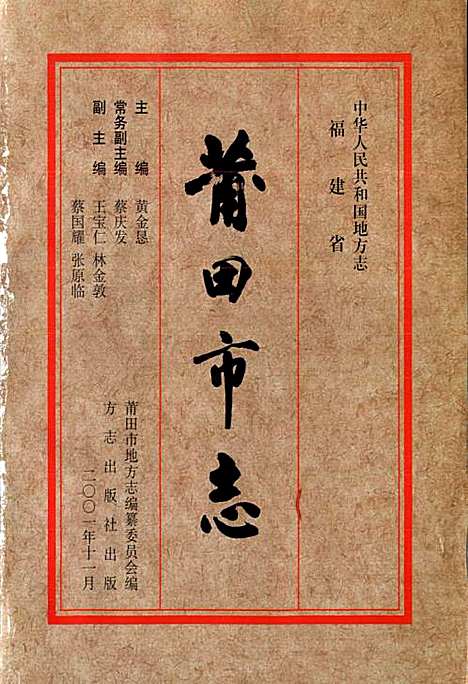 中华人民共和国地方志
福建省
莆田市志
主编 黄金恳
常务副主编 蔡庆发
副主编 王宝仁 林金敦
蔡国耀 张原临
莆田市地方志编纂委员会编
方志出版社出版
二〇〇一年十一月